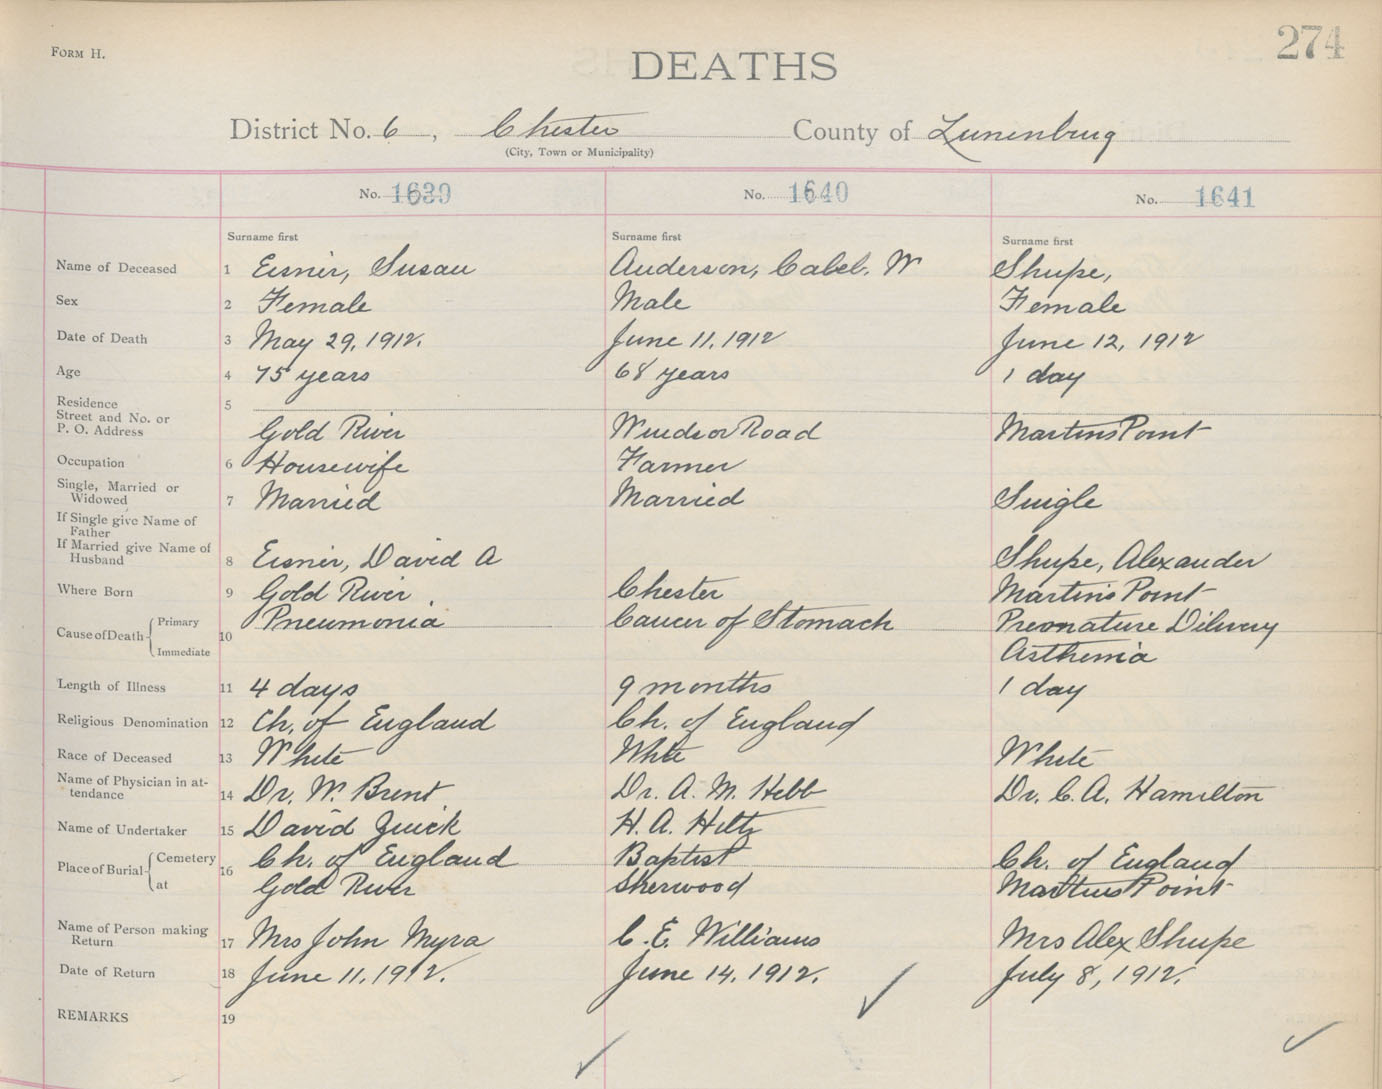 274
FORM H.
DEATHS
District No. 6, Chester County of Lunenburg
(City, Town or Municipality)
No. 1639 No. 1640 No. 1641
Surname first Surname first Surname first
Name of Deceased 1 Eisnir, Susan Anderson, Cabel. W Shupe,
Sex 2 Female Male Female
Date of Death 3 May 29, 1912. June 11, 1912 June 12, 1912
Age 4 75 years 68 years 1 day
Residence 5
Street and No. or
P. O. Address Gold River Windsor Road Martins Point
Occupation 6 Housewife Farmer
Single, Married or
Widowed 7 Married Married Single
If Single give Name of
Father
If Married give Name of
Husband 8 Eisnir, David A Shupe, Alexander
Where Born 9 Gold River Chester Martins Point
Cause of Death Primary 10 Pneumonia Cancer of Stomach Premature Dilivery
Immediate Asthenia
Length of Illness 11 4 days 9 months 1 day
Religious Denomination 12 Ch. of England Ch. of England
Race of Deceased 13 White White White
Name of Physician in at-
tendance 14 Dr. W. Brent Dr. A. M. Hebb Dr. C. A. Hamilton
Name of Undertaker 15 David Zwick H. A. Hiltz
Place of Burial Cemetery 16 Ch. of England Baptist Ch. of England
at Gold River Sherwood Martins Point
Name of Person making
Return 17 Mrs John Myra C. E. Williams Mrs Alex Shupe
Date of Return 18 June 11, 1912. June 14, 1912. July 8, 1912.
REMARKS 19